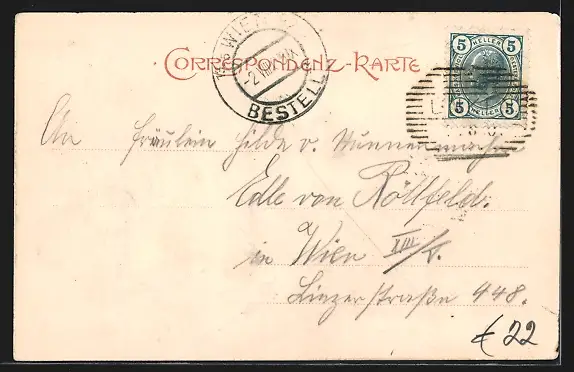 CORRESPONDENZ-KARTE
WIEN
BESTELL
5 HELLER 5
5 HELLER 5
An Fräulein Hilde v.
Edle von Röllfeld.
in Wien XIII/5.
Linzerstraße 448.
€ 22